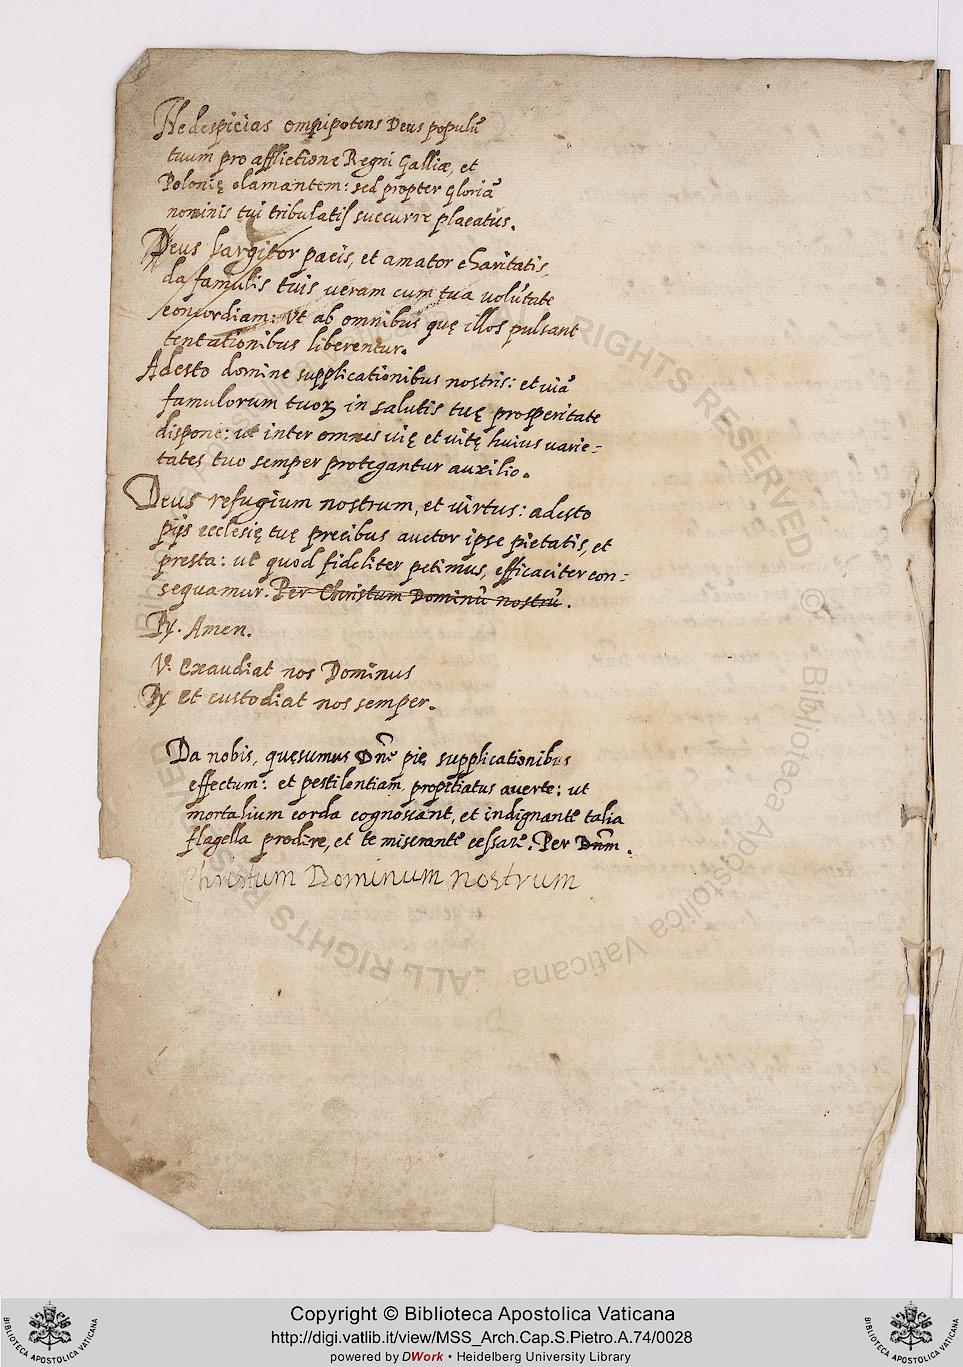 Ne despicias omnipotens Deus populū
tuum pro afflictione Regni Galliæ, et
Polonię clamantem: sed propter gloriā
nominis tui tribulatis succurre placatus.
Deus largitor pacis, et amator charitatis,
da famulis tuis veram cum tua volūtate
concordiam: Vt ab omnibus quę illos pulsant
tentationibus liberentur.
Adesto domine supplicationibus nostris: et viā
famulorum tuoꝝ in salutis tuę prosperitate
dispone: ut inter omnes vię et vitę huius varie-
tates tuo semper protegantur auxilio.
Deus refugium nostrum, et virtus: adesto
pijs ecclesię tuę precibus auctor ipse pietatis, et
presta: ut quod fideliter petimus, efficaciter con-
sequamur. Per Christum Dominū nostrū.
℟. Amen.
V. Exaudiat nos Dominus
℟ Et custodiat nos semper.
Da nobis, quęsumus Dn̄e pię supplicationibus
effectum: et pestilentiam propitiatus averte: ut
mortalium corda cognoscant, et indignante talia
flagella prodire, et te miserante cessare. Per Dn̄m.
Christum Dominum nostrum
ALL RIGHTS RESERVED © Biblioteca Apostolica Vaticana
BIBLIOTECA APOSTOLICA VATICANA
Copyright © Biblioteca Apostolica Vaticana
http://digi.vatlib.it/view/MSS_Arch.Cap.S.Pietro.A.74/0028
powered by DWork • Heidelberg University Library
BIBLIOTECA APOSTOLICA VATICANA